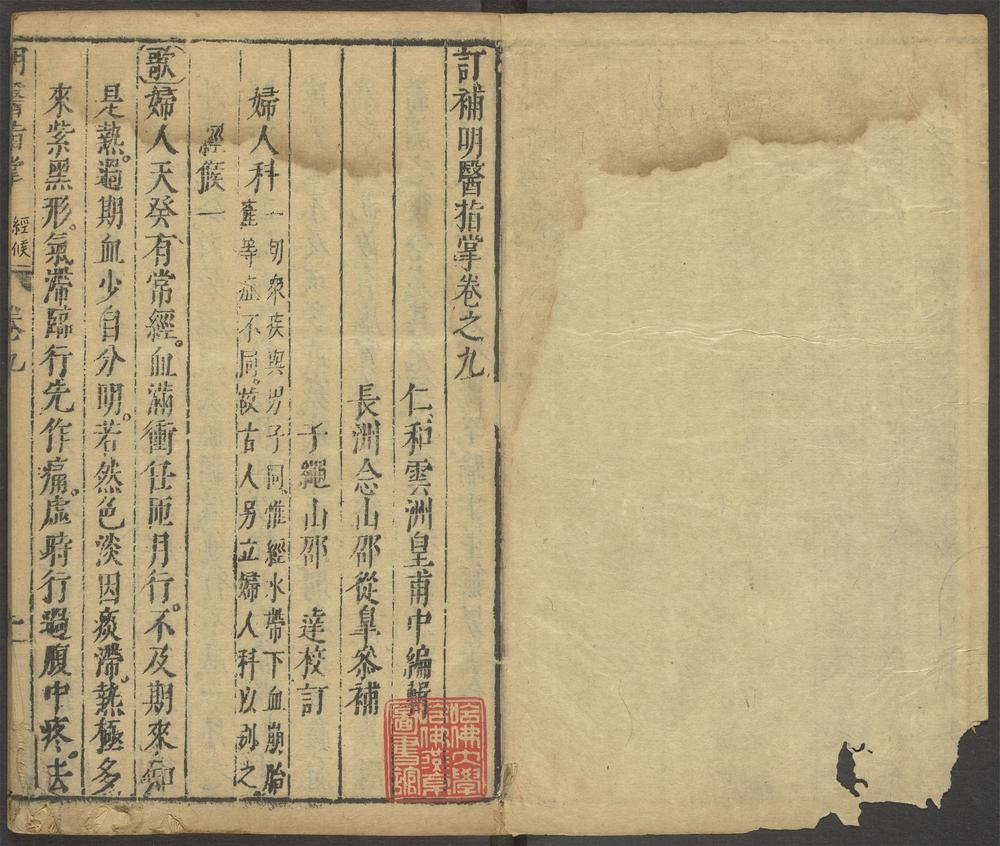 訂補明醫指掌卷之九
仁和雲洲皇甫中編輯
長洲念山邵從臯叅補
子繩山邵 達校訂
婦人科 一切衆疾與男子同惟經水帶下血崩胎
產等症不同故古人另立婦人科以别之
經候一
歌 婦人天癸有常經血滿衝任匝月行不及期來知
是熱過期血少自分明若然色淡因痰滯熱極多
來紫黑形氣滯臨行先作痛虚時行過腹中疼去
明醫指掌 經候一 卷九 一
哈佛大學
哈佛燕京
圖書館